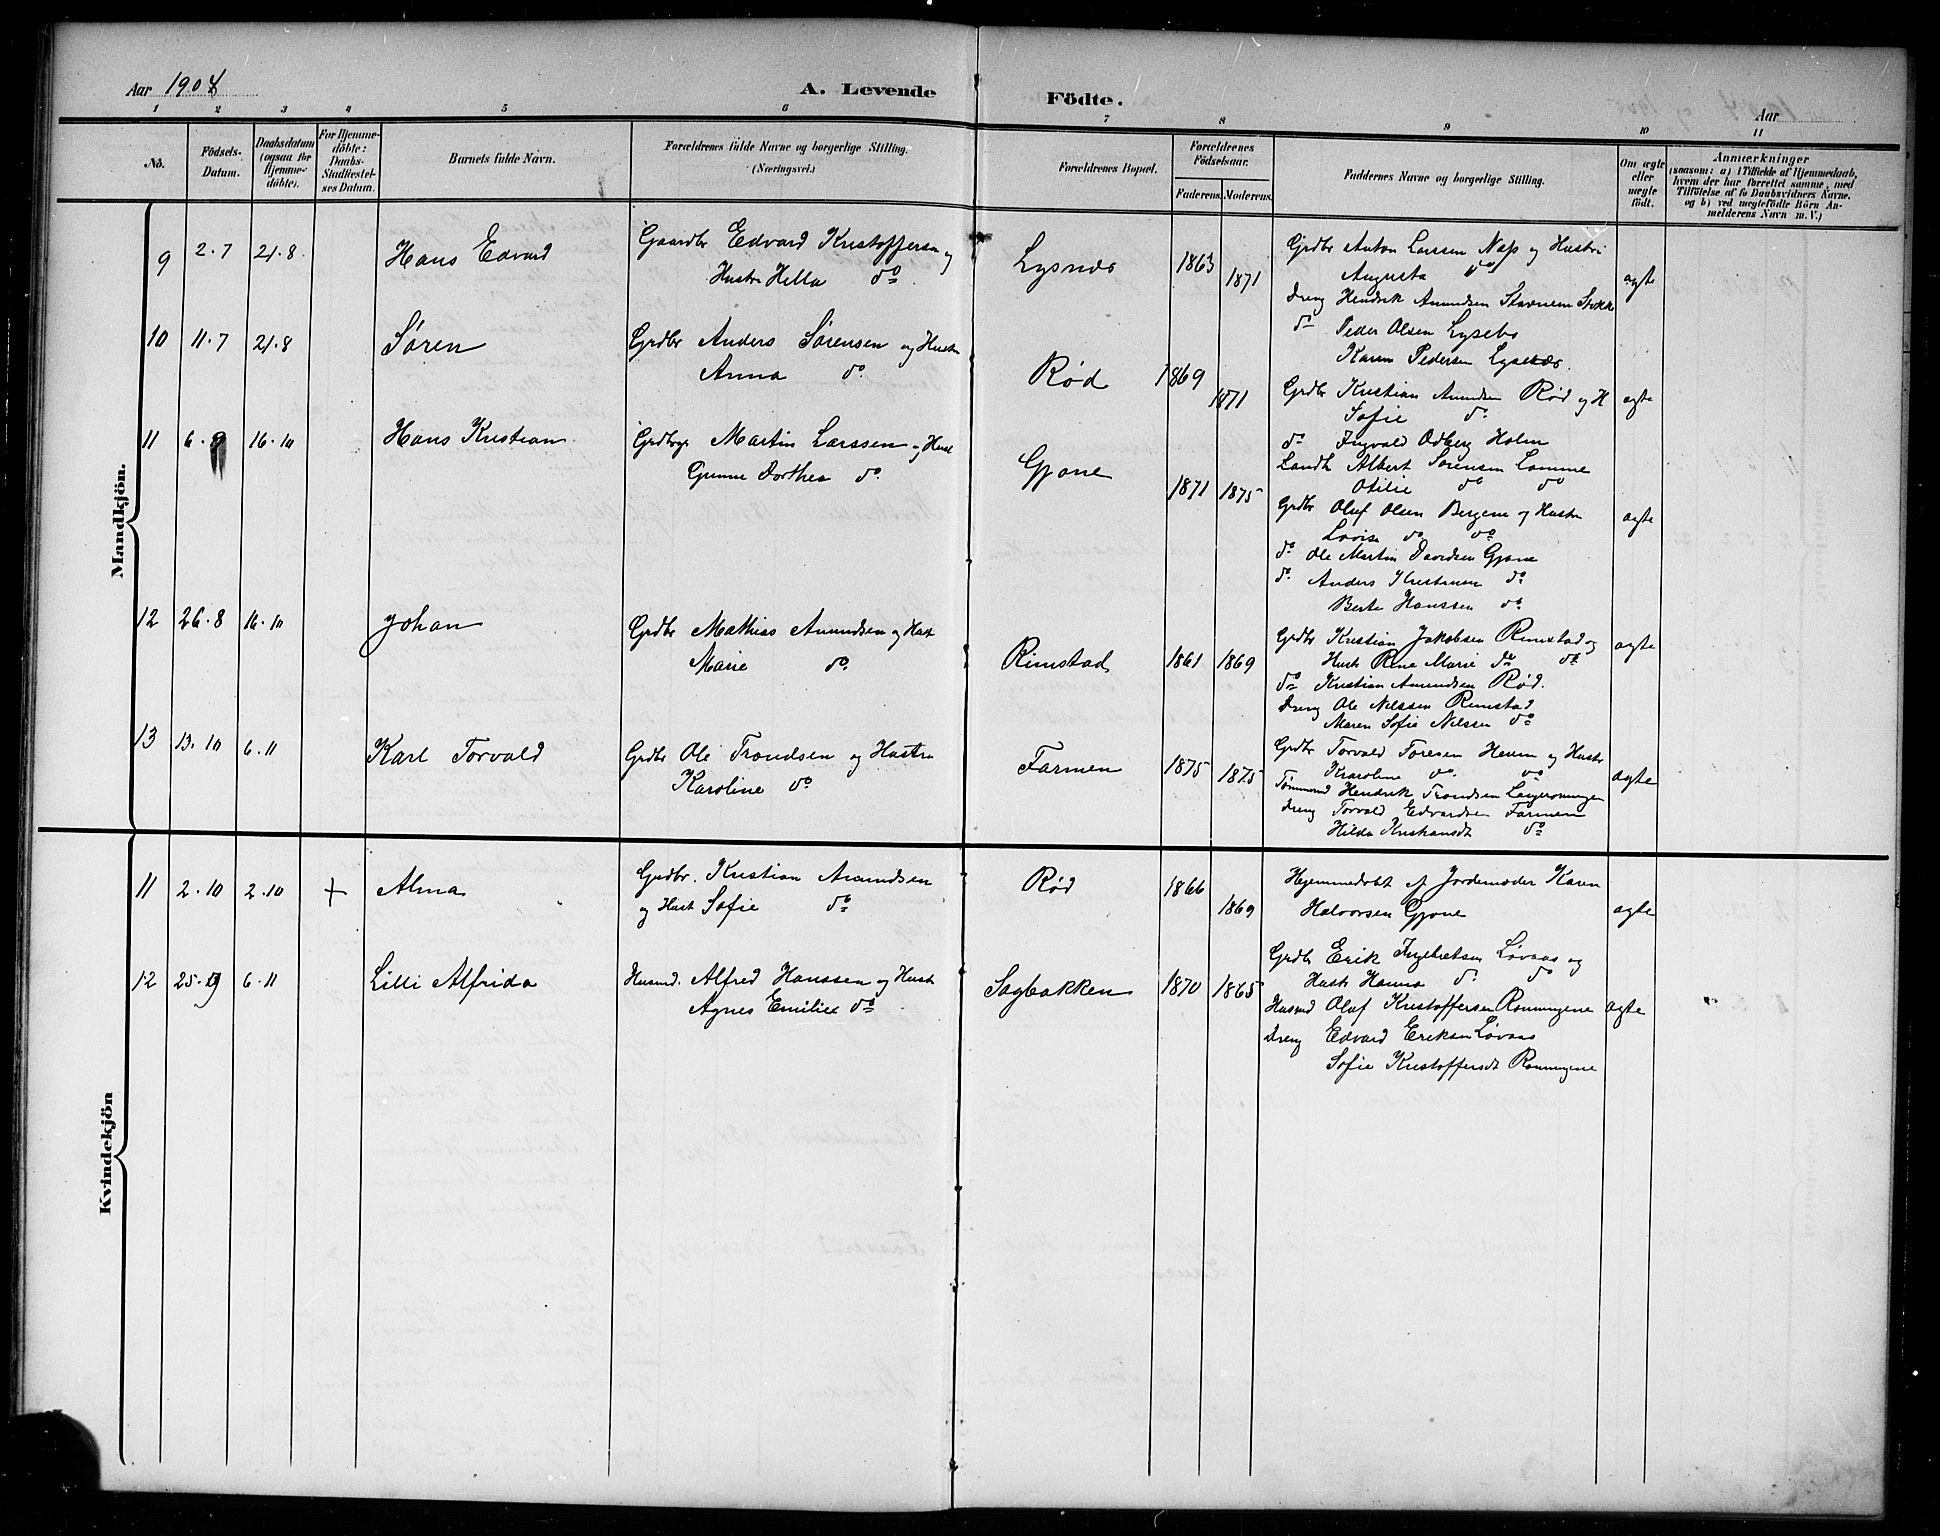 Aar 1904
A. Levende Födte.
Aar
1 2 3 4 5 6 7 8 9 10 11
No.
Födsels-Datum.
Daabsdatum (ogsaa for Hjemmedöbte).
For Hjemmedöbte: Daabs-Stadfæstelses Datum.
Barnets fulde Navn.
Forældrenes fulde Navne og borgerlige Stilling. (Næringsvei.)
Forældrenes Bopæl.
Forældrenes Födselsaar.
Faderens. Moderens.
Faddernes Navne og borgerlige Stilling.
Om ægte eller uægte födt.
Anmærkninger
(saasom: a) i Tilfælde af Hjemmedaab,
hvem der har forrettet samme, med
Tilföielse af to Daabsvidners Navne.
og b) ved uægtefödte Börn An-
melderens Navn m. V.)
Mandkjön.
9 2.7 21.8 Hans Edvard
Gaardbr Edvard Kristoffersen og
Hustr Hella do.
Lysnes 1863 1871
Grdbr Anton Larssen Nap og Hustri
Augusta do
Dreng Hendrik Amundsen Stavnem Stokke
do Peder Olsen Lysebo
Karen Pedersen Lysenæs.
ægte
10 11.7 21.8 Søren
Grdbr Anders Sørensen og Hustr
Anna do.
Rød 1869 1871
Grdbr Kristian Amundsen Rød og H
Sofie do
do Ingvald Odberg Holm
Landh Albert Sørensen Lamme
Otilie do do
ægte
11 6.9 16.10 Hans Kristian
Grdbrgr Martin Larssen og Hust
Gunne Dorthea do.
Gjone 1871 1875
Grdbr Oluf Olsen Bergene og Hustr
Lovise do do
do Ole Martin Davidsen Gjone
do. Anders Kristensen do.
Berte Hanssen do.
ægte
12 26.8 16.10 Johan
Grdbr Mathias Amundsen og Hust
Marie do.
Rimstad 1861 1869
Grdbr Kristian Jakobsen Rimstad og
Hustr Rine Marie do do
do Kristian Amundsen Rød.
Dreng Ole Nilssen Rimstad
Maren Sofie Nilssen do
ægte
13 13.10 6.11 Karl Torvald
Grdbr Ole Trondsen og Hustru
Karoline do
Farmen 1875 1875
Grdbr Torvald Toresen Heum og Hustr
Karoline do. do
Tømmermd Hendrik Trondsen
Dreng Torvald Edvardsen Farmen
Hilda Kristiansdt do
ægte
Kvindekjön
11 2.10 2.10 + Alma
Grdbr. Kristian Amundsen
og Hust Sofie do
Rød 1866 1869
Hjemmedøbt af Jordemoder Karen
Halvorsen Gjone
ægte
12 25.9 6.11 Lilli Alfrida
Husmd. Alfred Hanssen og Hustr
Agnes Emilie do
Sagbakken 1870 1865
Grdbr Erik Ingebretsen Løvaas og
Hustr Hanna do. do
Husmd Oluf Kristoffersen Rønningene
Dreng Edvard Eriksen Løvaas
Sofie Kristoffersdt Rønningene
ægte